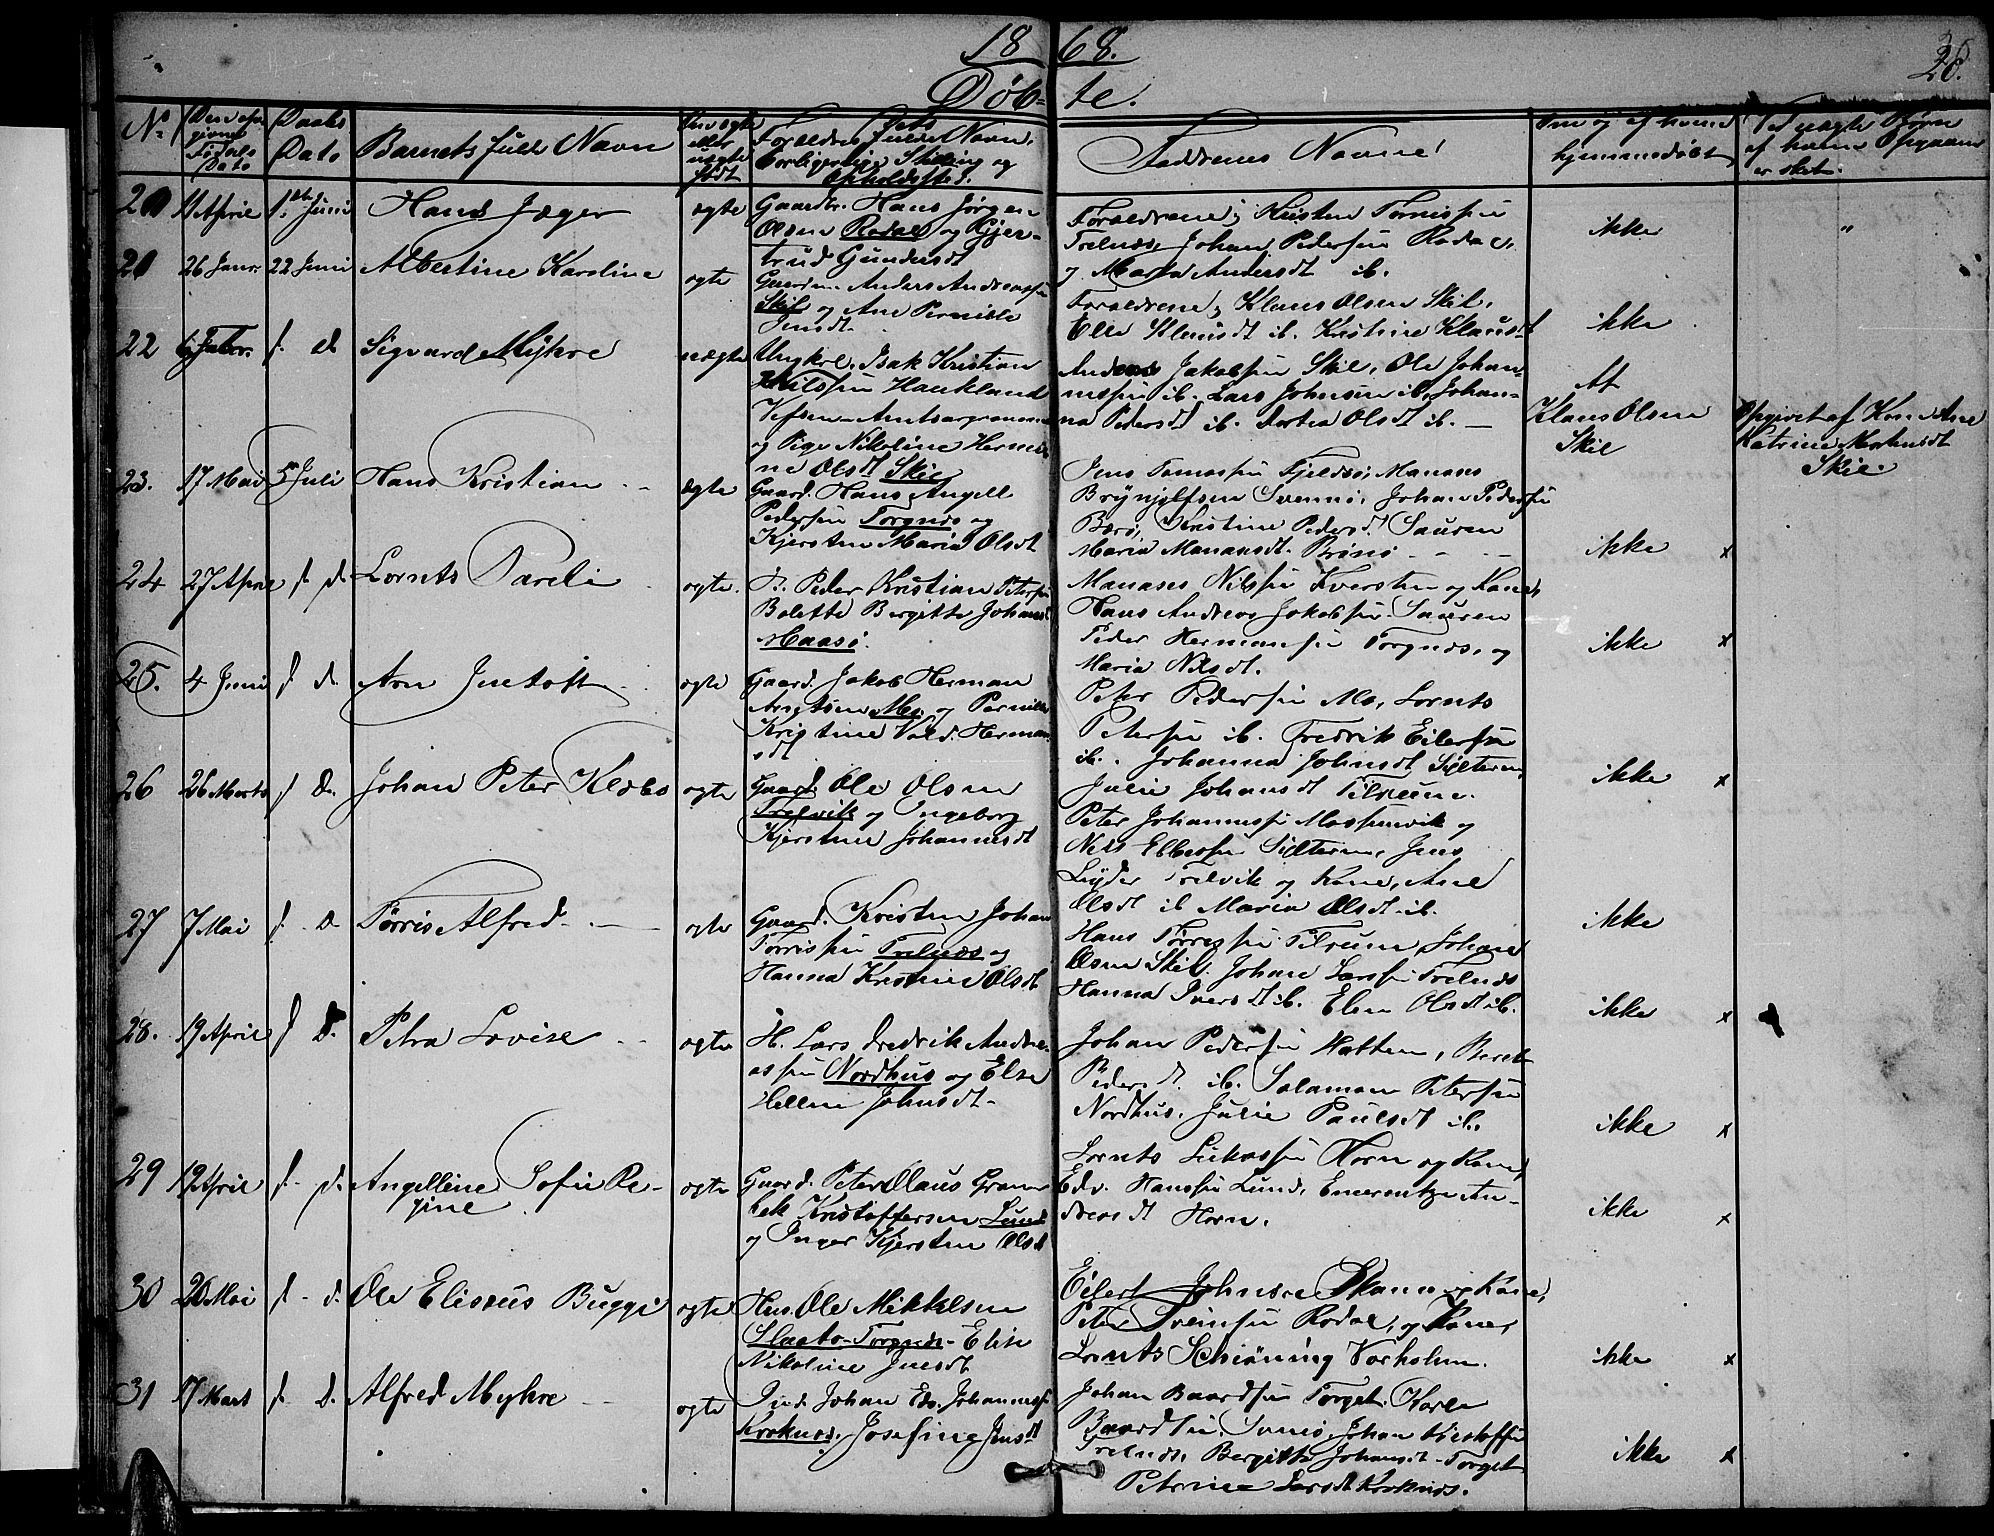 1868.
28.
Døbte.
No
Den opgivne Fødsels Dato
Daabs Dato
Barnets fulde Navn
Om ægte eller uægte født
Forældres fulde Navn, borgerlige Stilling og Opholdsted.
Faddrenes Navne
Om og af hvem hjemmedøbt
Ved uægte Børn af hvem Opgaven er sket.
20 11 April 1ste Juni Hans Jæger ægte
Gaardbr. Hans Jørgen
Olsen Rodal og Kjer-
trud Gundersdt
Forældrene, Kristen Tørrissen
Trelnæs, Johan Pedersen Rodal,
og Marta Andersdt ib.
ikke "
21 26 Janr. 22 Juni Albertine Karoline ægte
Gaardm. Anders Andreassen
Skil og Ane Pernille
Jensdt.
Forældrene, Klaus Olsen Skil,
Elle Klausdt ib. Kristine Klausdt
ikke
22 6 Febr. s. d. Sigvard Myhre uægte
Ungkrl. Isak Kristian
Nilssen Haukland
Vefsen
og Pige Nikoline Hermi-
ne Olsdt Skil
Anders Jakobsen Skil, Ole Johan-
nessen ib. Lars Johnsen ib. Johan-
na Pedersdt ib. Dortea Olsdt ib. —
Af
Klaus Olsen
Skil
Opgivet af Kone Ane
Katrine
Skil.
23. 17 Mai 5 Juli Hans Kristian ægte
Gaard. Hans Angell
Pedersen Torgnæs og
Kjersten Maria Olsdt
Jens Tomassen Fjeldsø, Manases
Brynjulfsen Svennø, Johan Pedersen
Bærø, Kristine Pedersdt Sauren
Maria Manasesdt. Brønø
ikke x
24 27 April s. d. Lornts Pareli ægte.
P. Peder Kristian Petersen
Bolette Bergitte Johansdt
Maasø.
Manases Nilssen Kversten og Kone,
Hans Andreas Jakobsen Sauren
Peder Hermansen Torgnæs, og
Maria Nilsdt.
ikke x
25. 4 Juni s. d. Arn Justoft ægte
Gaard. Jakob Herman
Arntsen Mo, og Pernille
Kristine Vold. Herman-
sdt
Peter Pedersen Mo, Lornts
Petersen ib. Fredrik Eilersen
ib. Johanna Johnsdt Sylteren,
Julie Johansdt Tilrem.
ikke x
26 26 Marts s. d. Johan Peter Klæbo ægte
Gaard. Ole Olsen
Trelvik og Ingeborg
Kjerstine Johannesdt
Peter Johannessen Mosservik og
Nils Ebbesen Sylteren, Jens
Lyder Trelvik og Kone, Ane
Olsdt ib Maria Olsdt ib.
ikke
27 7 Mai s. d Tørris Alfred ægte
Gaard. Kristen Johan
Tørrissen Trelnæs og
Hanna Kristine Olsdt
Hans Tørrissen Tilrem Johan
Olsen Skil. Johan Larssen Trelnæs
Hanna Iversdt ib. Elen Olsdt ib.
ikke x
28. 19 April s. d. Petra Lovise ægte
H. Lars Fredrik Andre-
assen Nordhus og Else
Helen Johnsdt.
Johan Pedersen Hatten, Beret
Pedersdt. ib. Salamon Petersen
Nordhus, Julie Paulsdt ib.
ikke x
29 12 April s. d. Angelline Sofie Re-
gine ægte
Gaard. Peter Claus Gram
bek Kristoffersen Lund
og Inger Kjersten Olsdt
Lornts Lukassen Horn og Kone,
Edv. Hanssen Lund, Emerentze An-
dreasdt Horn.
ikke x
30 20 Mai s. d. Ole Eliseus Bugge ægte
Hus Ole Mikkelsen
Slaato-Torgnæs - Elise
Nikoline Jensdt
Eilert Johnsen Skann og Kone,
Peter Svensen Rodal, og Kone,
Lornts Schiøning Torholmen.
ikke x
31 17 Mart s. d. Alfred Myhre ægte
Ind. Johan Edv. Johannessen
Kroknæs, Josefine Jensdt
Johan Baardsen Torget. Karle
Baardsen, Svenø, Johan Kristoffersen
Trelnæs, Bergitte Johansdt Torget
Petrine Larsdt Kroknæs.
ikke x